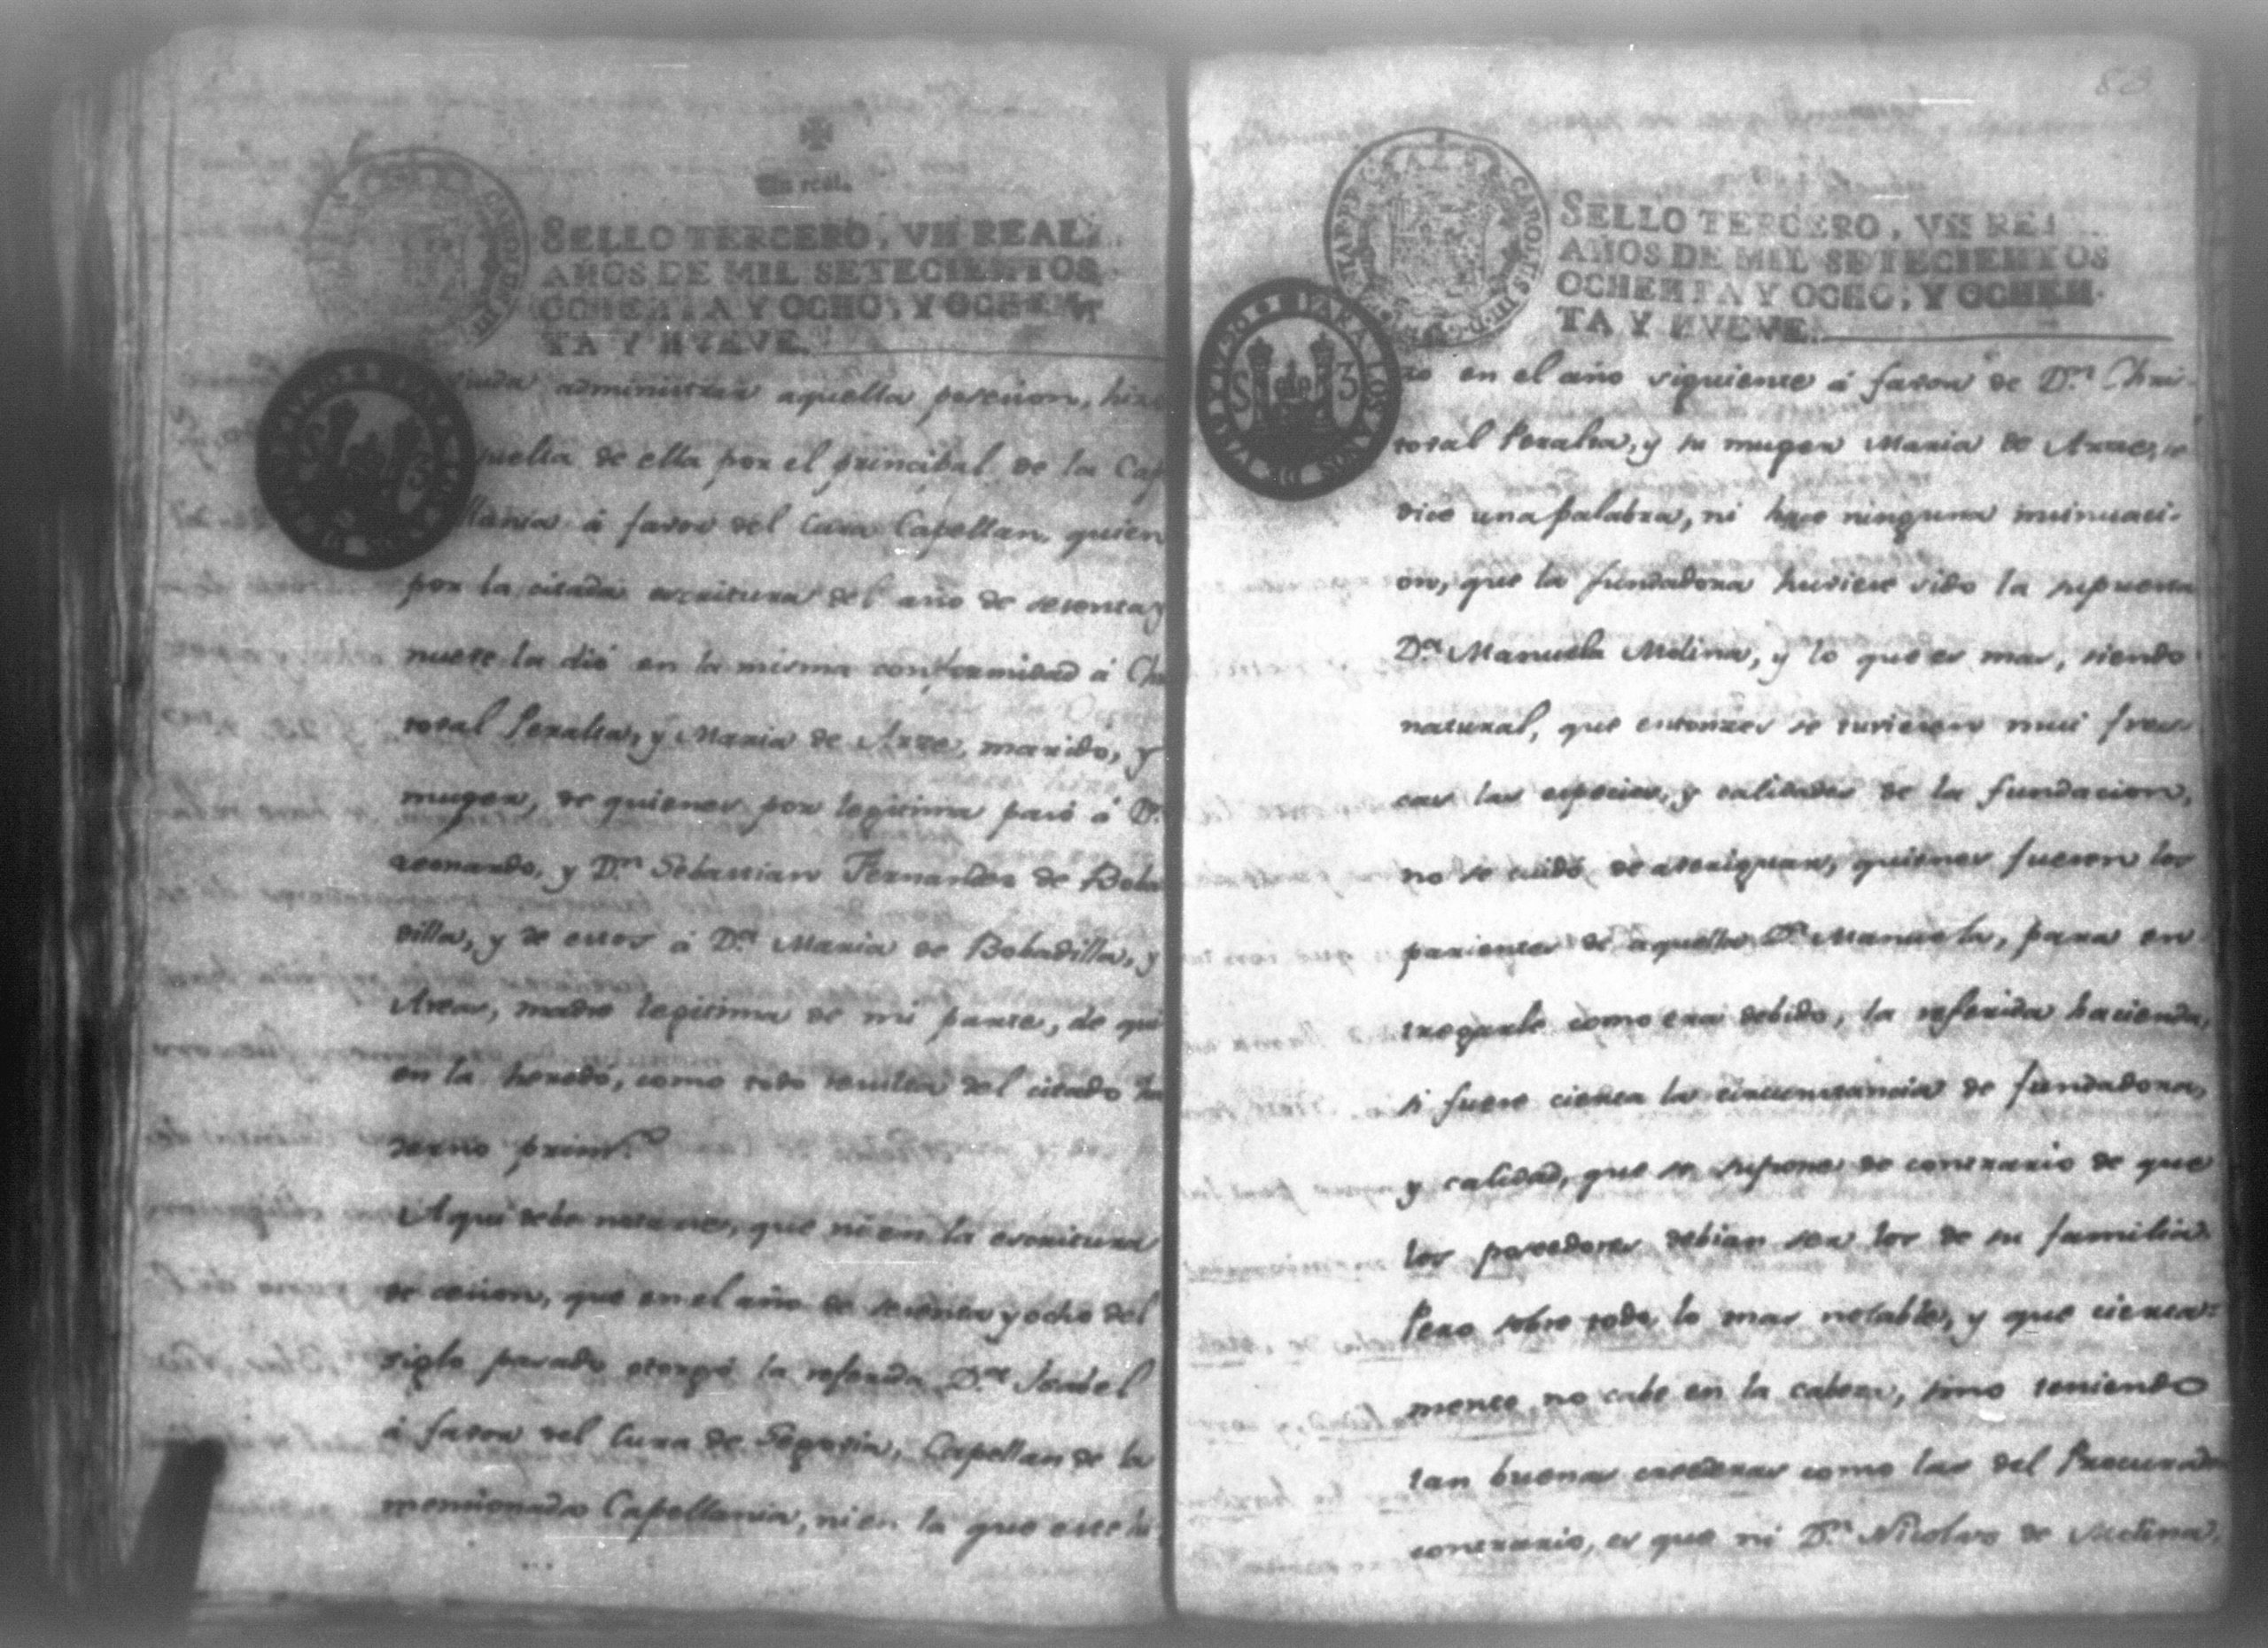 Un real.
SELLO TERCERO, VN REAL.
AÑOS DE MIL SETECIENTOS
OCHENTA Y OCHO, Y OCHEN-
TA Y NVEVE.
administrar aquella posecion, hizo
de ella por el principal de la Cap
llania á favor del Cura Capellan, quien
por la citada escritura del año de setenta y
nueve la dió en la misma conformidad á Chris
toval Peralta, y Maria de Arze, marido, y
muger, de quienes por legitima pasó á Dn
Leonardo, y Dn Sebastian Fernandez de Boba
dilla, y de estos á Da Maria de Bobadilla, y
Arcas, madre legitima de mi parte, de qui
en la heredó, como todo resulta del citado
derno prim.ro
Aqui debe notarse, que ni en la escritura
de cesion, que en el año de setenta y ocho del
siglo pasado otorgó la referida Da Isabel
á favor del Cura de Capellan de la
mencionada Capellania, ni en la que este hi
83
CAROLUS III D G HISPANIAR REX
SELLO TERCERO, VN REAL
AÑOS DE MIL SETECIENTOS
OCHENTA Y OCHO, Y OCHEN-
TA Y NVEVE.
PARA LOS AÑOS DE
S 3
zo en el año siguiente á favor de Dn Chris-
toval Peralta, y su muger Maria de Arze, se
dice una palabra, ni hace ninguna insinuaci-
on, que la fundadora huviese sido la supuesta
Da Manuela Molina, y lo que es mas, siendo
natural, que entonzes se tuviesen mui fres-
cas las especies, y calidades de la fundacion,
no se cuidó de averiguar, quienes fueron los
parientes de aquella Da Manuela, para en
tregarle como era debido, la referida hacienda,
si fuese cierta la circunstancia de fundadora,
y calidad, que se supone de contrario de que
los poseedores debian ser los de su familia.
Pero sobre todo lo mas notable, y que cierta-
mente no cabe en la cabeza, sino teniendo
tan buenas creederas como las del Procurador
contrario, es que ni Dn Nicolas de Molina,